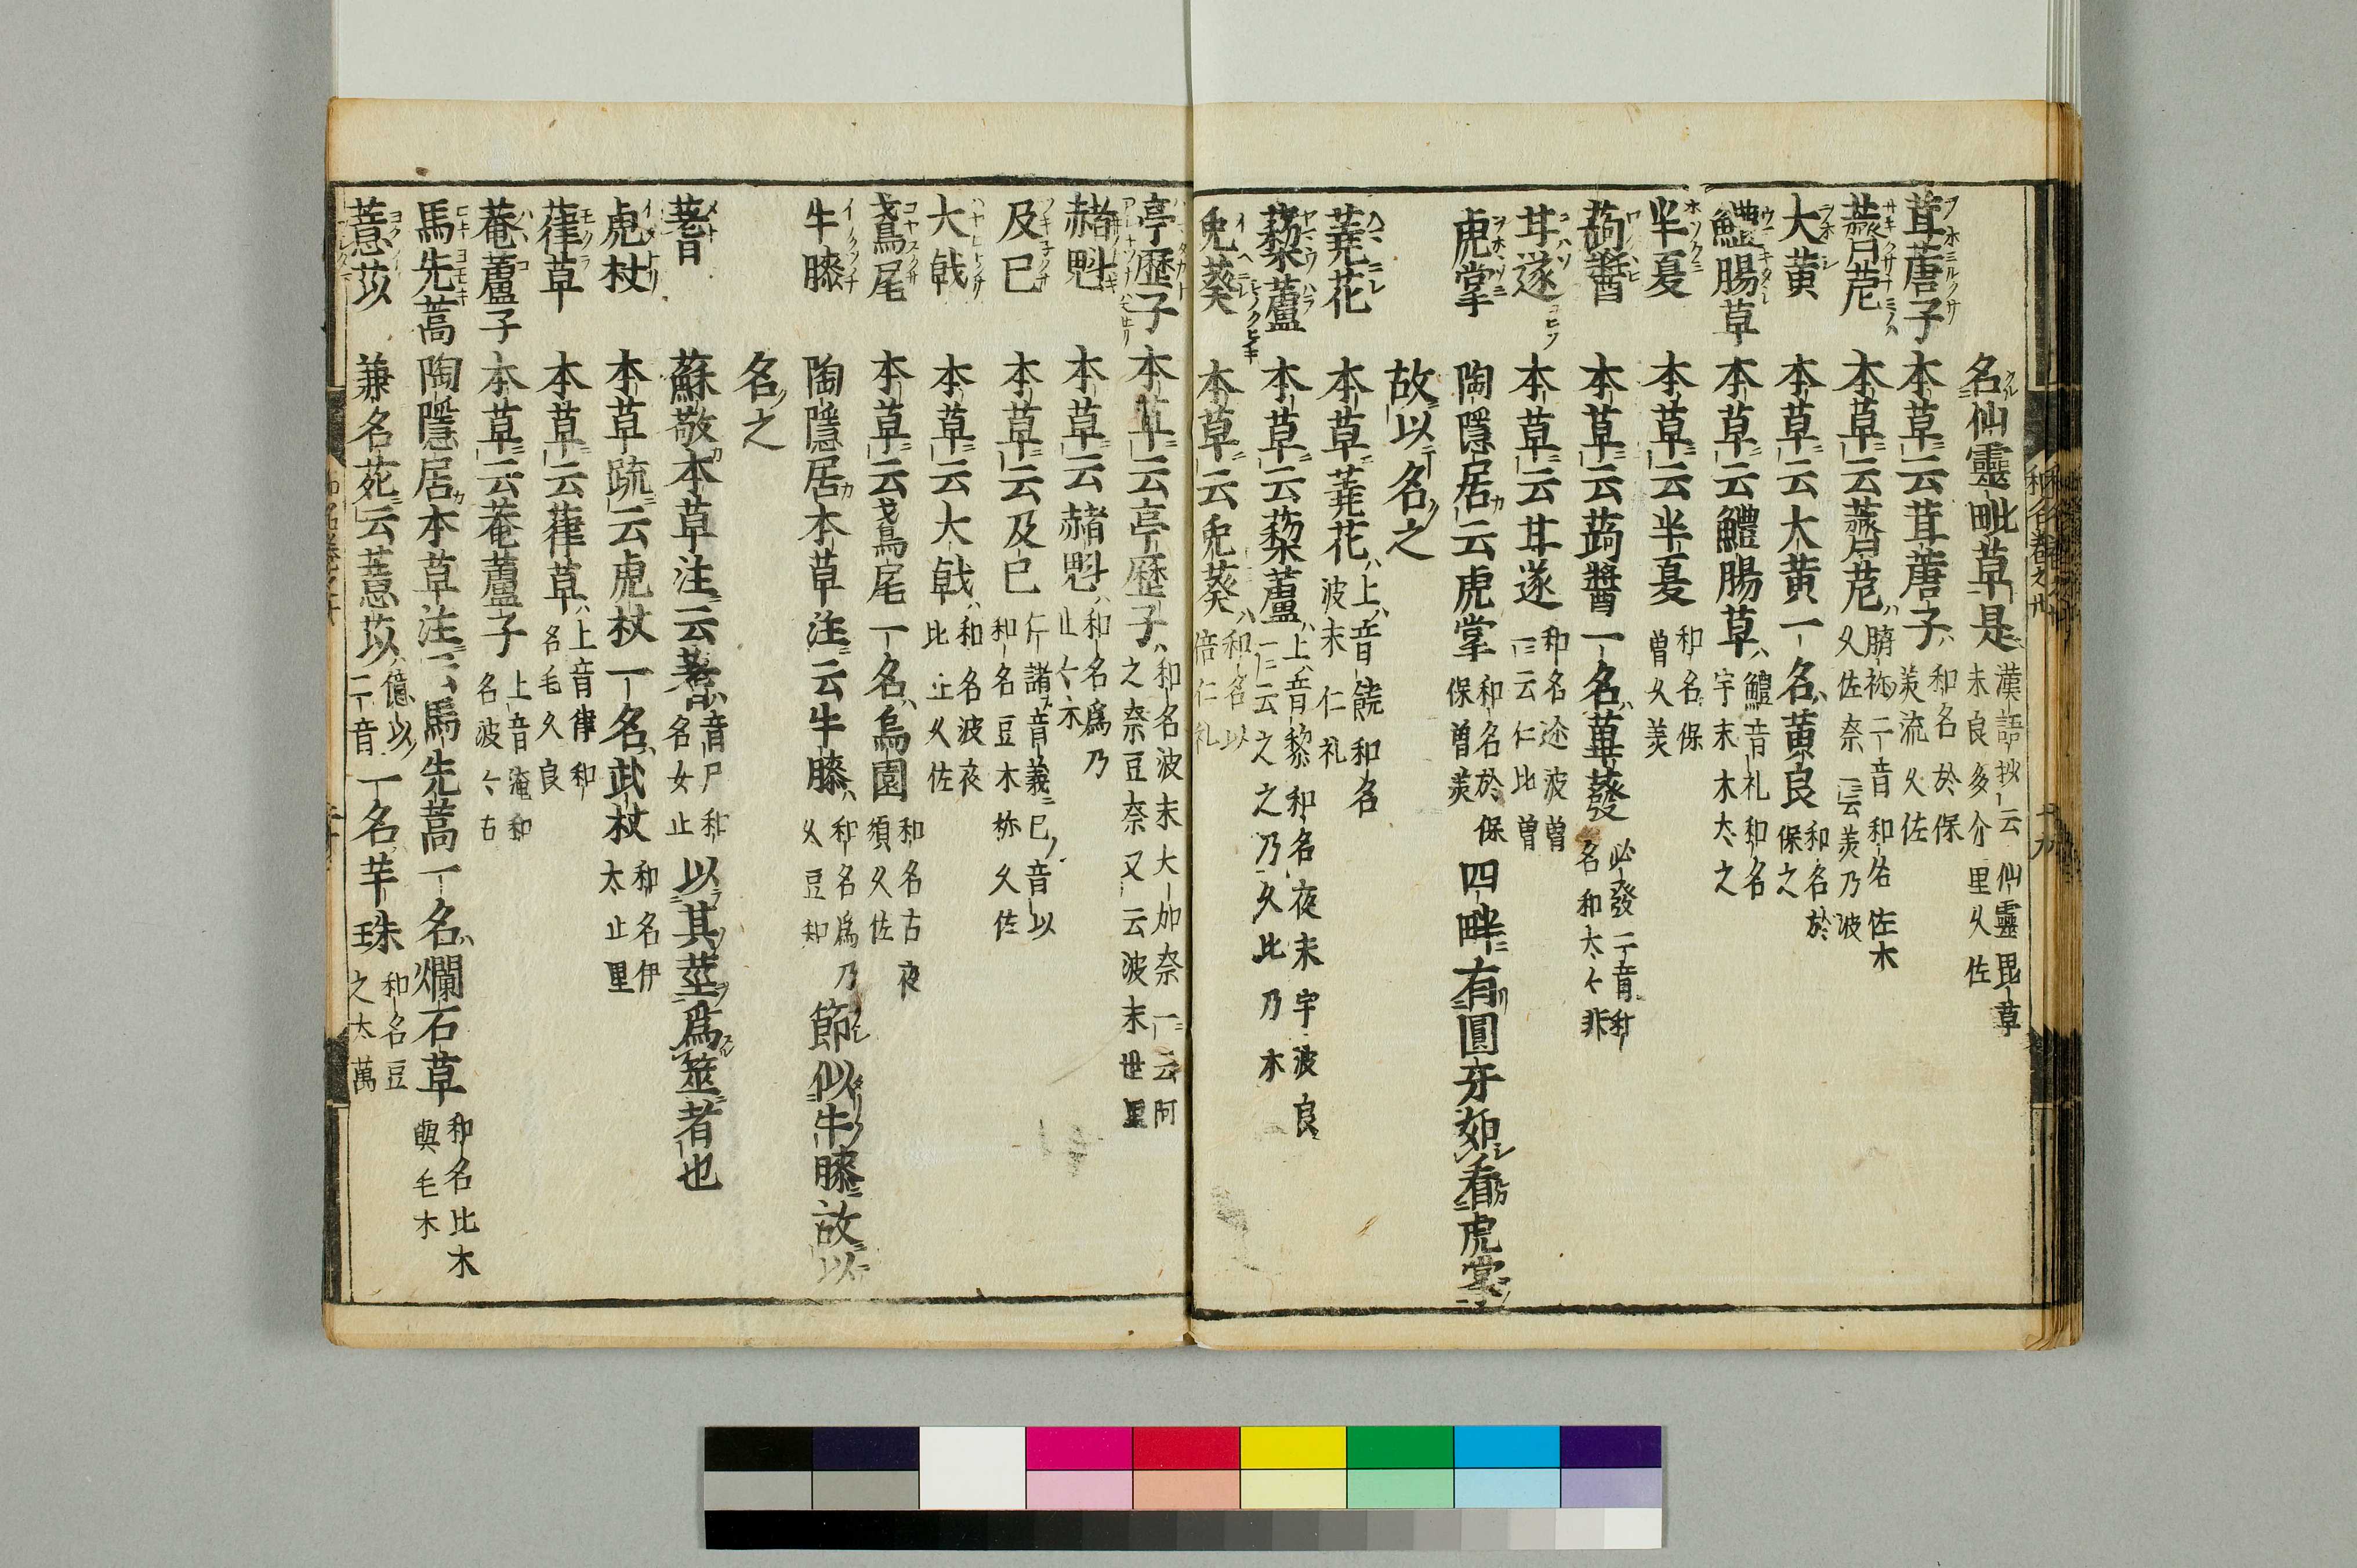 名仙靈毗草是漢語抄云仙靈毘草末良多介里久佐
茛蓎子 本草云茛蓎子和名於保美流久佐
薺苨 本草云薺苨臍祢二音和名佐木久佐奈一云美乃波
大黄 本草云大黄一名黄良和名於保之
鱧腸草 本草云鱧腸草鱧音礼和名宇末木太之
半夏 本草云半夏和名保曽久美
蒟醬 本草云蒟醬一名蓽蕟必發二音和名和太々非
甘遂 本草云甘遂和名迩波曽一云仁比曽
虎掌 陶隱居云虎掌和名於保保曽美四畔有圓牙如看虎掌
故以名之
蕘花 本草蕘花上音饒和名波末仁礼
藜蘆 本草云藜蘆上音黎和名夜末宇波良一云之之乃久比乃木
兎葵 本草云兎葵和名以倍仁礼
亭歴子 本草云亭歴子和名波末太加奈一云阿之奈豆奈又云波末世里
赭魁 本草云赭魁和名爲乃止々木
及已 本草云及已仁諝音義已音以和名豆木祢久佐
大戟 本草云大戟和名波夜比止久佐
鳶尾 本草云鳶尾一名烏園和名古夜須久佐
牛膝 陶隱居本草注云牛膝和名爲乃久豆知節似牛膝故以
名之
蓍 蘇敬本草注云蓍音尸和名女止以其莖爲筮者也
虎杖 本草疏云虎杖一名武杖和名伊太止里
葎草 本草云葎草上音律和名毛久良
菴蘆子 本草云菴蘆子上音淹和名波々古
馬先蒿 陶隱居本草注云馬先蒿一名爛石草和名比木與毛木
薏苡 兼名苑云薏苡億以二音一名芉珠和名豆之太萬